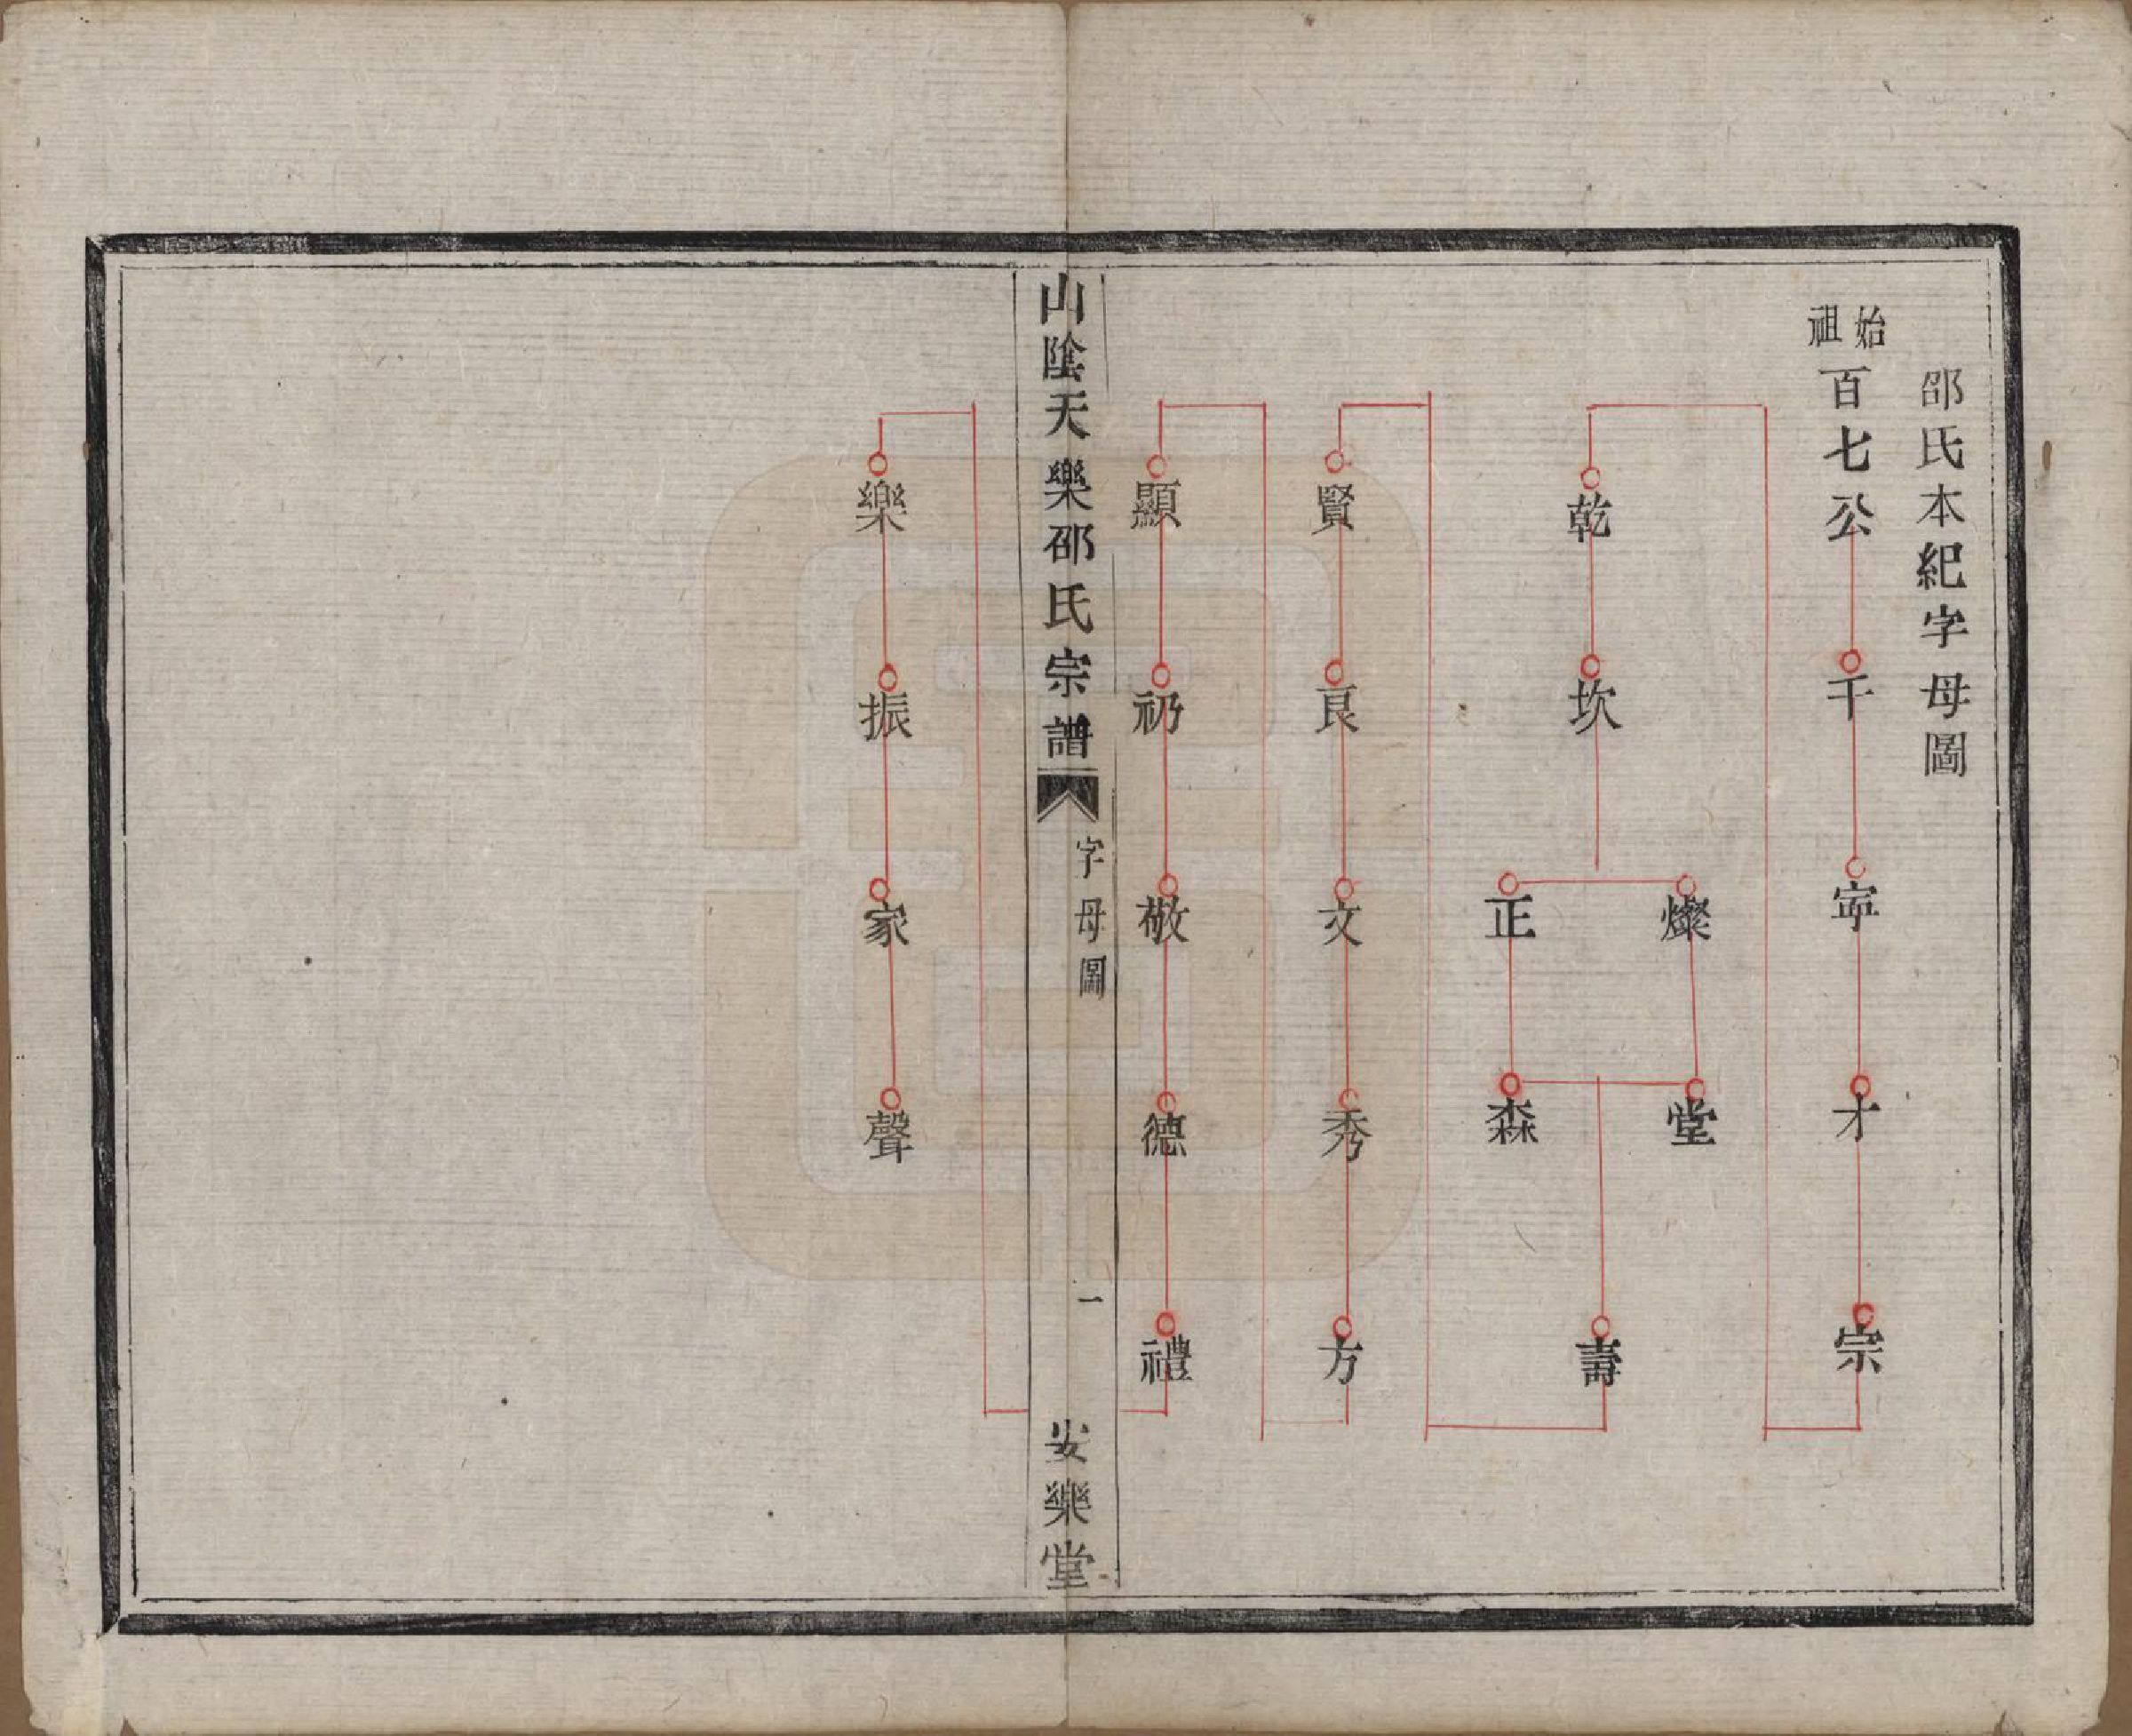 邵氏本紀字母圖
始祖百七公 千 寍 才 宗
乾 坎
燦 堂
正 森
壽
賢 良 文 秀 方
顯 礽 敬 德 禮
山陰天樂邵氏宗譜 字母圖 一 安樂堂
樂 振 家 聲